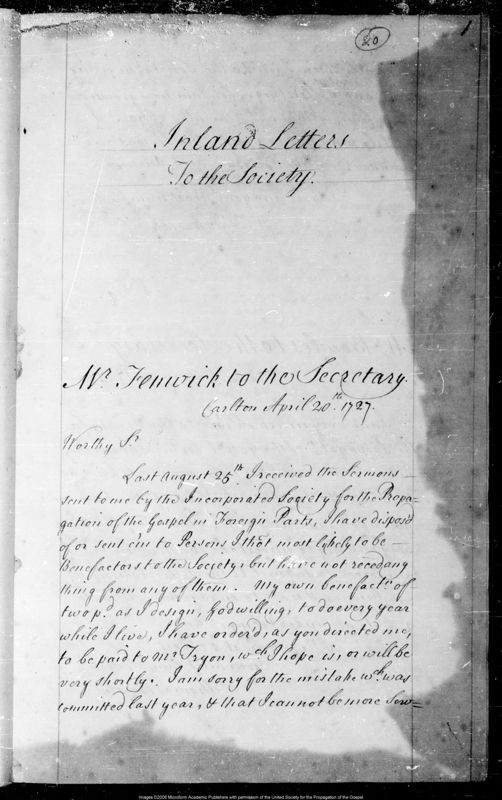 20
1
Inland Letters
To the Society.
Mr. Fenwick to the Secretary.
Carlton April 20th. 1727.
Worthy Sr.
Last August 25th I received the Sermons
sent to me by the Incorporated Society for the Propa=
gation of the Gospel in Foreign Parts, I have dispos'd
of or sent e'm to Persons I that most likely to be
Benefactors to the Society, but have not reced any
thing from any of them. My own benefactn. of
two pd. as I design, God willing, to do every year
while I live, I have order'd, as you directed me,
to be paid to Mr Tryon, wch. I hope is, or will be
very shortly. I am sorry for the mistake wh. was
committed last year, & that I cannot be more Serv=
Images ©2006 Microform Academic Publishers with permission of the United Society for the Propagation of the Gospel